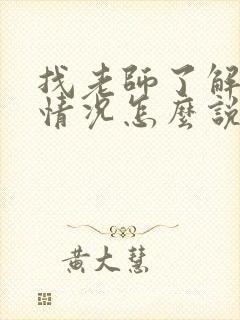 找老師了解
情況怎麼說
黃大慧